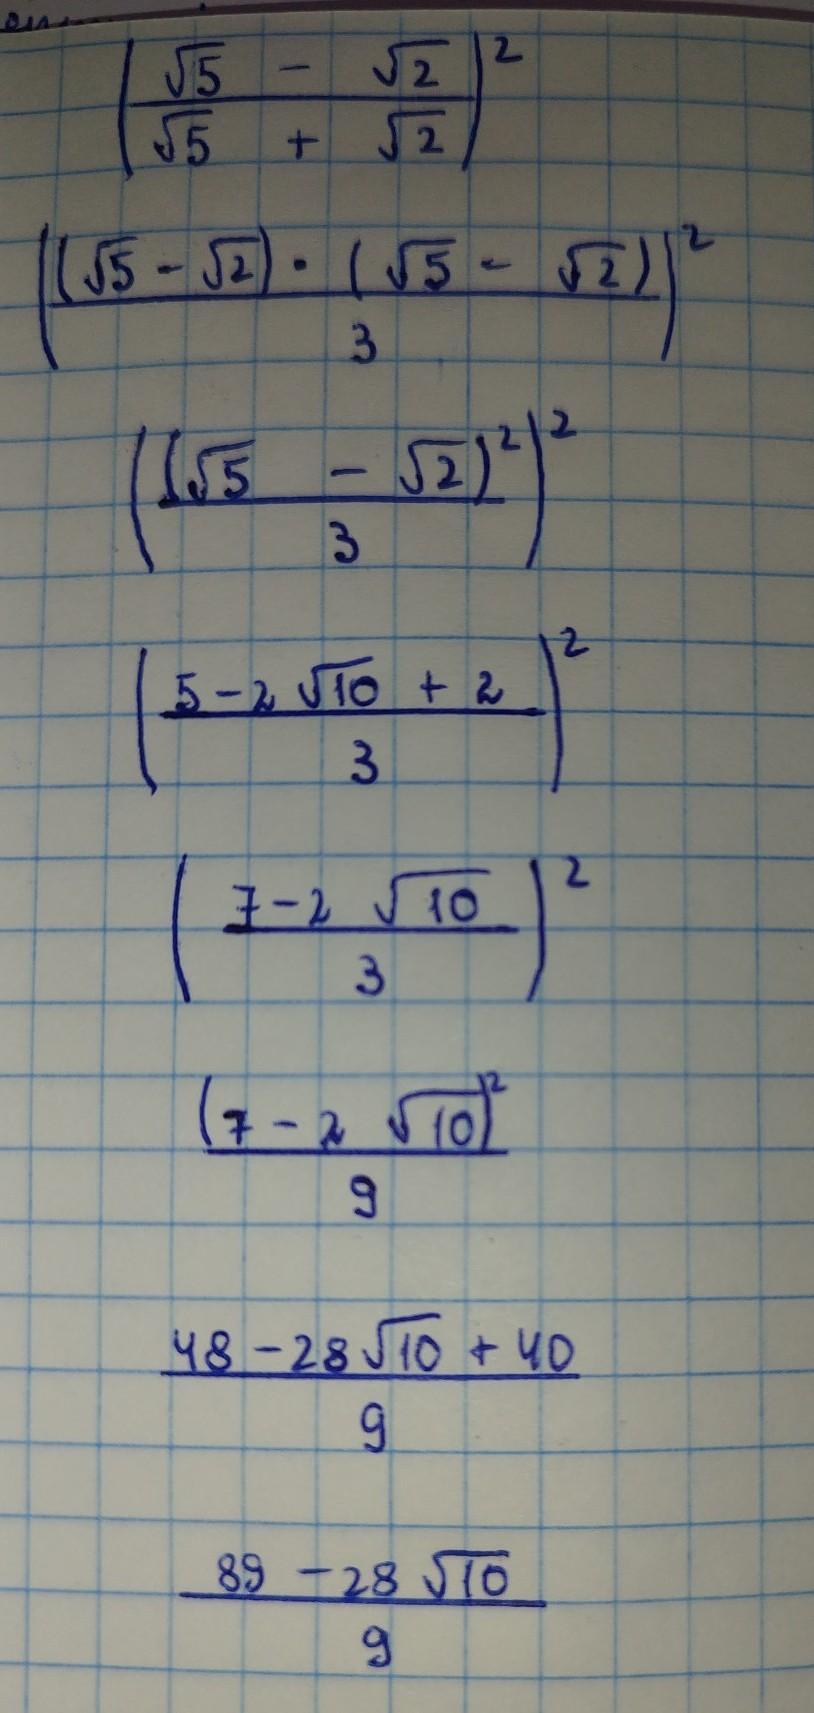 (√5 - √2 / √5 + √2)²
((√5 - √2) · (√5 - √2) / 3)²
((√5 - √2)² / 3)²
(5 - 2√10 + 2 / 3)²
(7 - 2√10 / 3)²
(7 - 2√10)² / 9
48 - 28√10 + 40 / 9
89 - 28√10 / 9